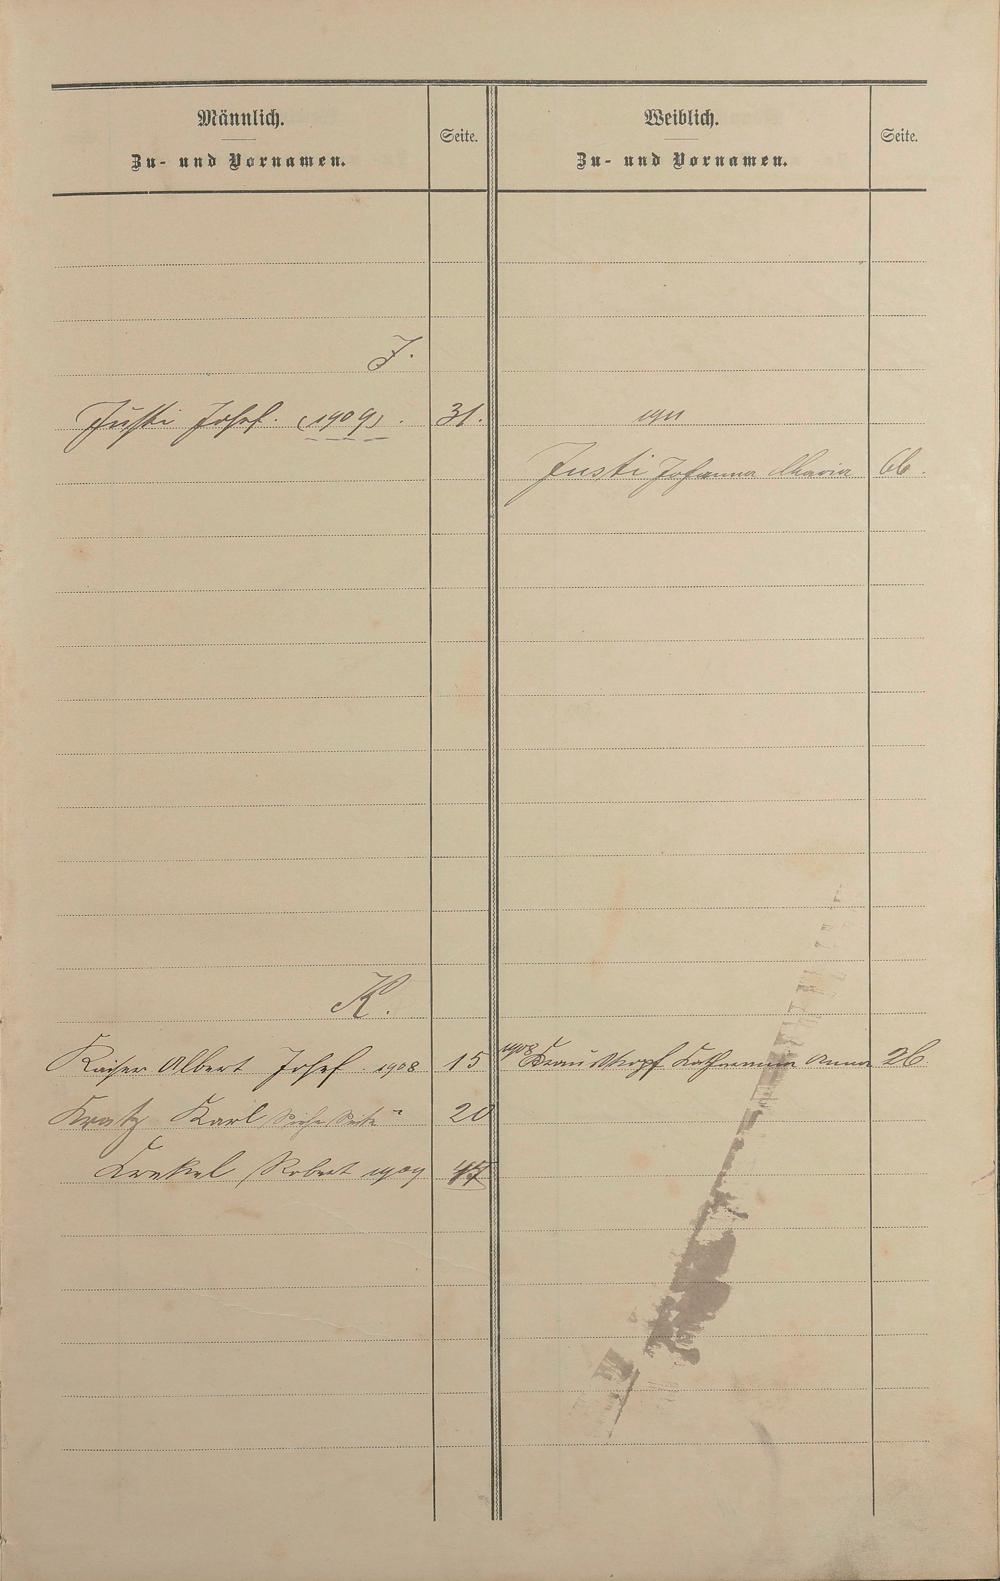 Männlich.
Zu- und Vornamen.
Seite.
Weiblich.
Zu- und Vornamen.
Seite.
J.
Justi Josef. (1909). 31.
1911
Justi Johanna Maria 66.
K.
Kaiser Albert Josef 1908 15
1908 Katharina Anna 26
Kratz Karl Siehe Seite 20
Krekel Robert 1909 45